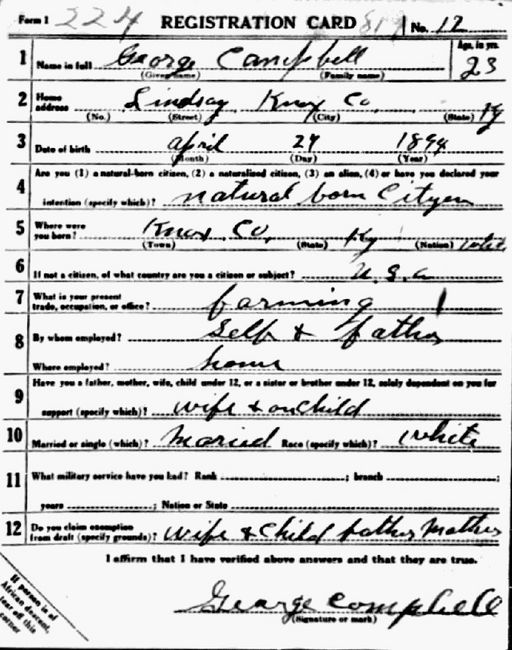 Form 1 224 REGISTRATION CARD 819 No. 12
1 Name in full George Campbell Age, in yrs. 23
(Given name) (Family name)
2 Home address Lindsay Knox Co, Ky
(No.) (Street) (City) (State)
3 Date of birth April 29 1894
(Month) (Day) (Year)
Are you (1) a natural-born citizen, (2) a naturalized citizen, (3) an alien, (4) or have you declared your
4 intention (specify which)? natural born Cityen
5 Where were you born? Knox Co, Ky
(Town) (State) (Nation)
6 If not a citizen, of what country are you a citizen or subject? U.S.a
7 What is your present trade, occupation, or office? farming
8 By whom employed? Self & father
Where employed? home
9 Have you a father, mother, wife, child under 12, or a sister or brother under 12, solely dependent on you for
support (specify which)? wife & onchild
10 Married or single (which)? Maried Race (specify which)? White
11 What military service have you had? Rank ; branch ;
years ; Nation or State
12 Do you claim exemption from draft (specify grounds)? Wife & Child father Mother
I affirm that I have verified above answers and that they are true.
George Compbell
(Signature or mark)
If person is of
African descent,
tear off this
corner